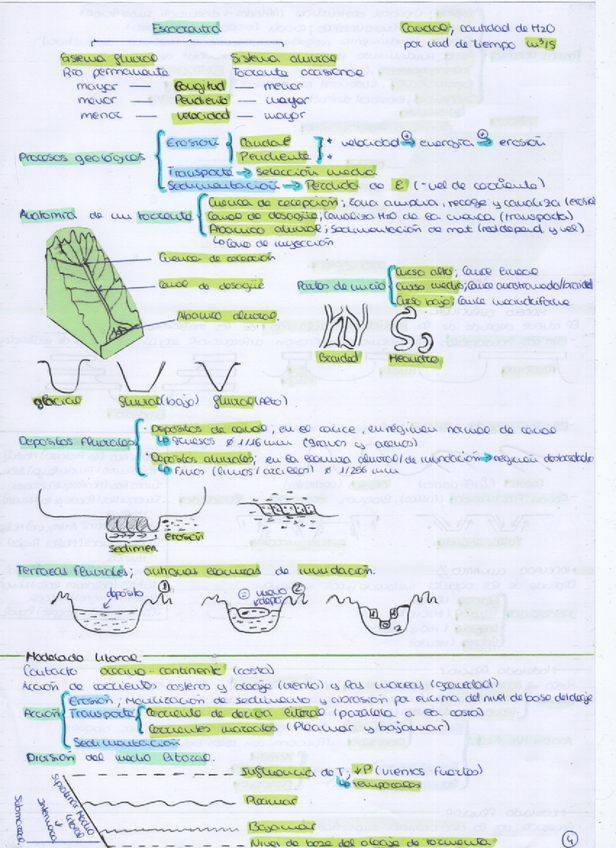 Escorrentía
Caudal; cantidad de H2O
por unid de tiempo m³/s
Sistema fluvial Sistema aluvial
Río permanente Torrente ocasional
mayor — Longitud — menor
menor — Pendiente — mayor
menor — velocidad — mayor
Procesos geológicos
Erosión Caudal
Pendiente * velocidad → energía → erosión
Transporte → Selección media
Sedimentación → Pérdida de E (-vel de corriente)
Anatomía de un torrente
Cuenca de recepción; Zona amplia, recoge y canaliza
Canal de desagüe; Canaliza H2O de la cuenca (transporte)
Abanico aluvial; Sedimentación de mat (red depend y vel)
↳ Cono de inyección
Cuenca de recepción
Canal de desagüe
Abanico aluvial
Partes de un río
Curso alto; Cauce lineal
Curso medio; Cauce anastomado/braided
Curso bajo; Cauce meandriforme
Braided Meandros
glaciar fluvial (bajo) fluvial (Alto)
Depósitos fluviales
· Depósitos de canal; en el cauce, en régimen normal de canal
↳ gruesos Ø 1/16 mm (gravas y arenas)
· Depósitos aluviales; en la llanura aluvial/de inundación → régimen desbordado
↳ Finos (limos/arcillas) Ø 1/256 mm
sedimen erosión
Terrazas fluviales; antiguas llanuras de inundación.
depósito 1
nuevo depós 2
2
Modelado litoral
Contacto océano-continente (costa)
Acción de corrientes costeras y oleaje (viento) y las mareas (gravedad)
Acción
Erosión; Movilización de sedimento y abrasión por encima del nivel de base del oleaje
Transporte Corriente de deriva litoral (paralela a la costa)
Corrientes mareales (Pleamar y bajamar)
Sedimentación
División del medio litoral.
Influencia de T; ↓P (vientos fuertes)
↳ temporales
Pleamar
Bajamar
Nivel de base del oleaje de tormenta
Supralitoral
4